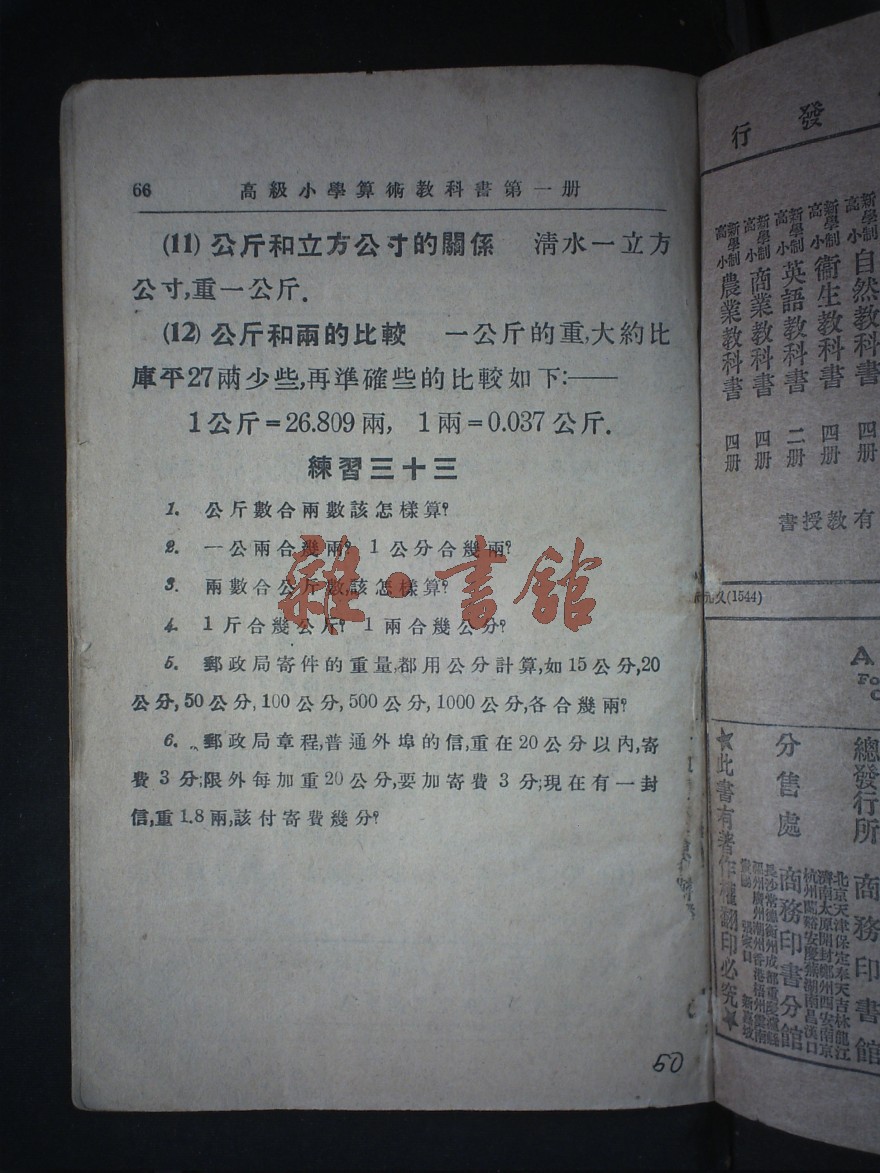 66 高級小學算術教科書第一册
(11) 公斤和立方公寸的關係 清水一立方
公寸,重一公斤.
(12) 公斤和兩的比較 一公斤的重,大約比
庫平27兩少些,再準確些的比較如下:——
1公斤=26.809兩, 1兩=0.037公斤.
練習三十三
1. 公斤數合兩數該怎樣算?
2. 一公兩合幾兩? 1公分合幾兩?
3. 兩數合公斤數,該怎樣算?
4. 1斤合幾公斤? 1兩合幾公分?
5. 郵政局寄件的重量,都用公分計算,如15公分,20
公分,50公分,100公分,500公分,1000公分,各合幾兩?
6. 郵政局章程,普通外埠的信,重在20公分以內,寄
費3分;限外每加重20公分,要加寄費3分;現在有一封
信,重1.8兩,該付寄費幾分?
50
雜·書館
發行
新學制高小自然教科書 四册
新學制高小衞生教科書 四册
新學制高小英語教科書 二册
新學制高小商業教科書 四册
新學制高小農業教科書 四册
有教授書
(1544)
A
總發行所 商務印書館
分售處 商務印書分館
北京天津保定奉天吉林龍江
濟南太原開封鄭州西安南京
杭州蘭谿安慶蕪湖南昌漢口
★此書有著作權翻印必究★